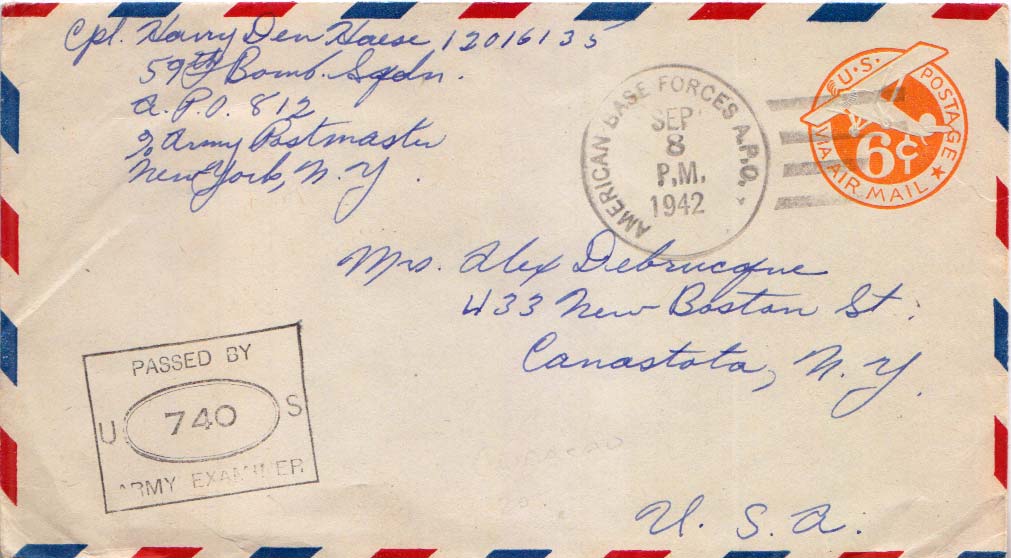 Cpl. Harry Den Haese, 12016135
59th Bomb. Sqdn.
A.P.O. 812
% Army Postmaster
New York, N.Y.
AMERICAN BASE FORCES A.P.O.
SEP
8
P.M.
1942
U.S. POSTAGE
6¢
VIA AIR MAIL
Mrs. Alex Debrucque
433 New Boston St.
Canastota, N.Y.
PASSED BY
U 740 S
ARMY EXAMINER
U. S. A.